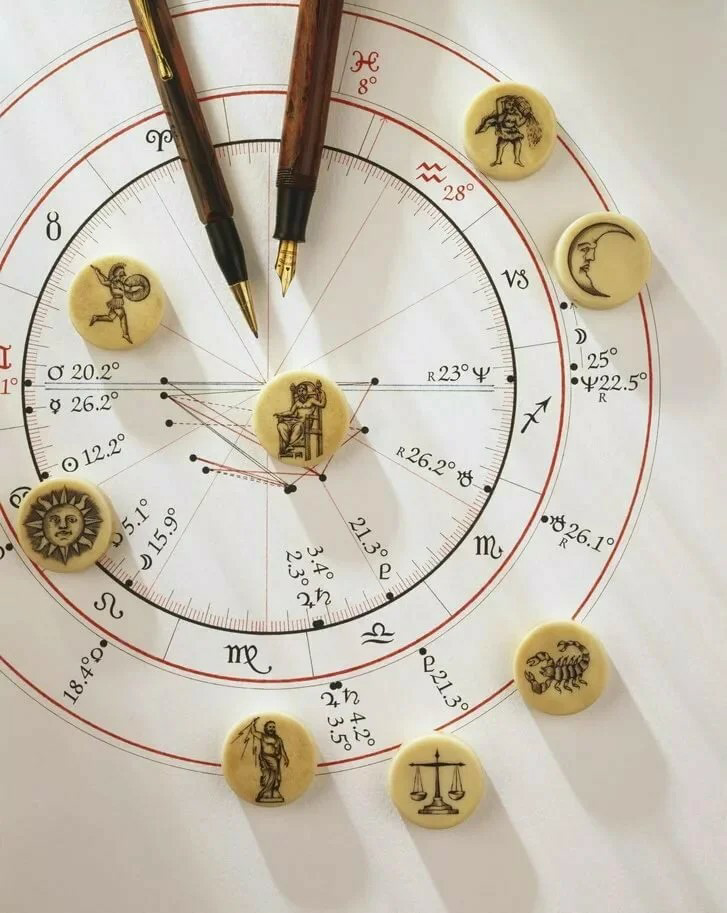 ♓
8°
♈
♒
28°
♉
♑
♂ 20.2°
R 23° ♆
☽
25°
♆ 22.5°
R
1°
☿ 26.2°
♐
☉ 12.2°
R 26.2° ⛢
5.1°
☽ 15.9°
21.3°
♇
⛢ 26.1°
R
♏
3.4°
2.3°
♃ ♄
♌
♎
♍
18.4°
♇ 21.3°
♃ ♄
3.5° 4.2°